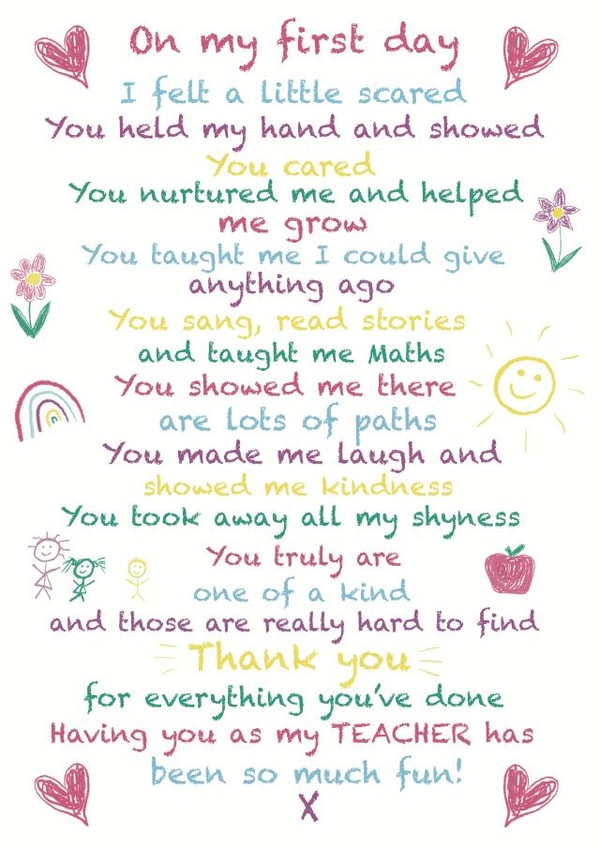 On my first day
I felt a little scared
You held my hand and showed
You cared
You nurtured me and helped
me grow
You taught me I could give
anything ago
You sang, read stories
and taught me Maths
You showed me there
are lots of paths
You made me laugh and
showed me kindness
You took away all my shyness
You truly are
one of a kind
and those are really hard to find
Thank you
for everything you've done
Having you as my TEACHER has
been so much fun!
X